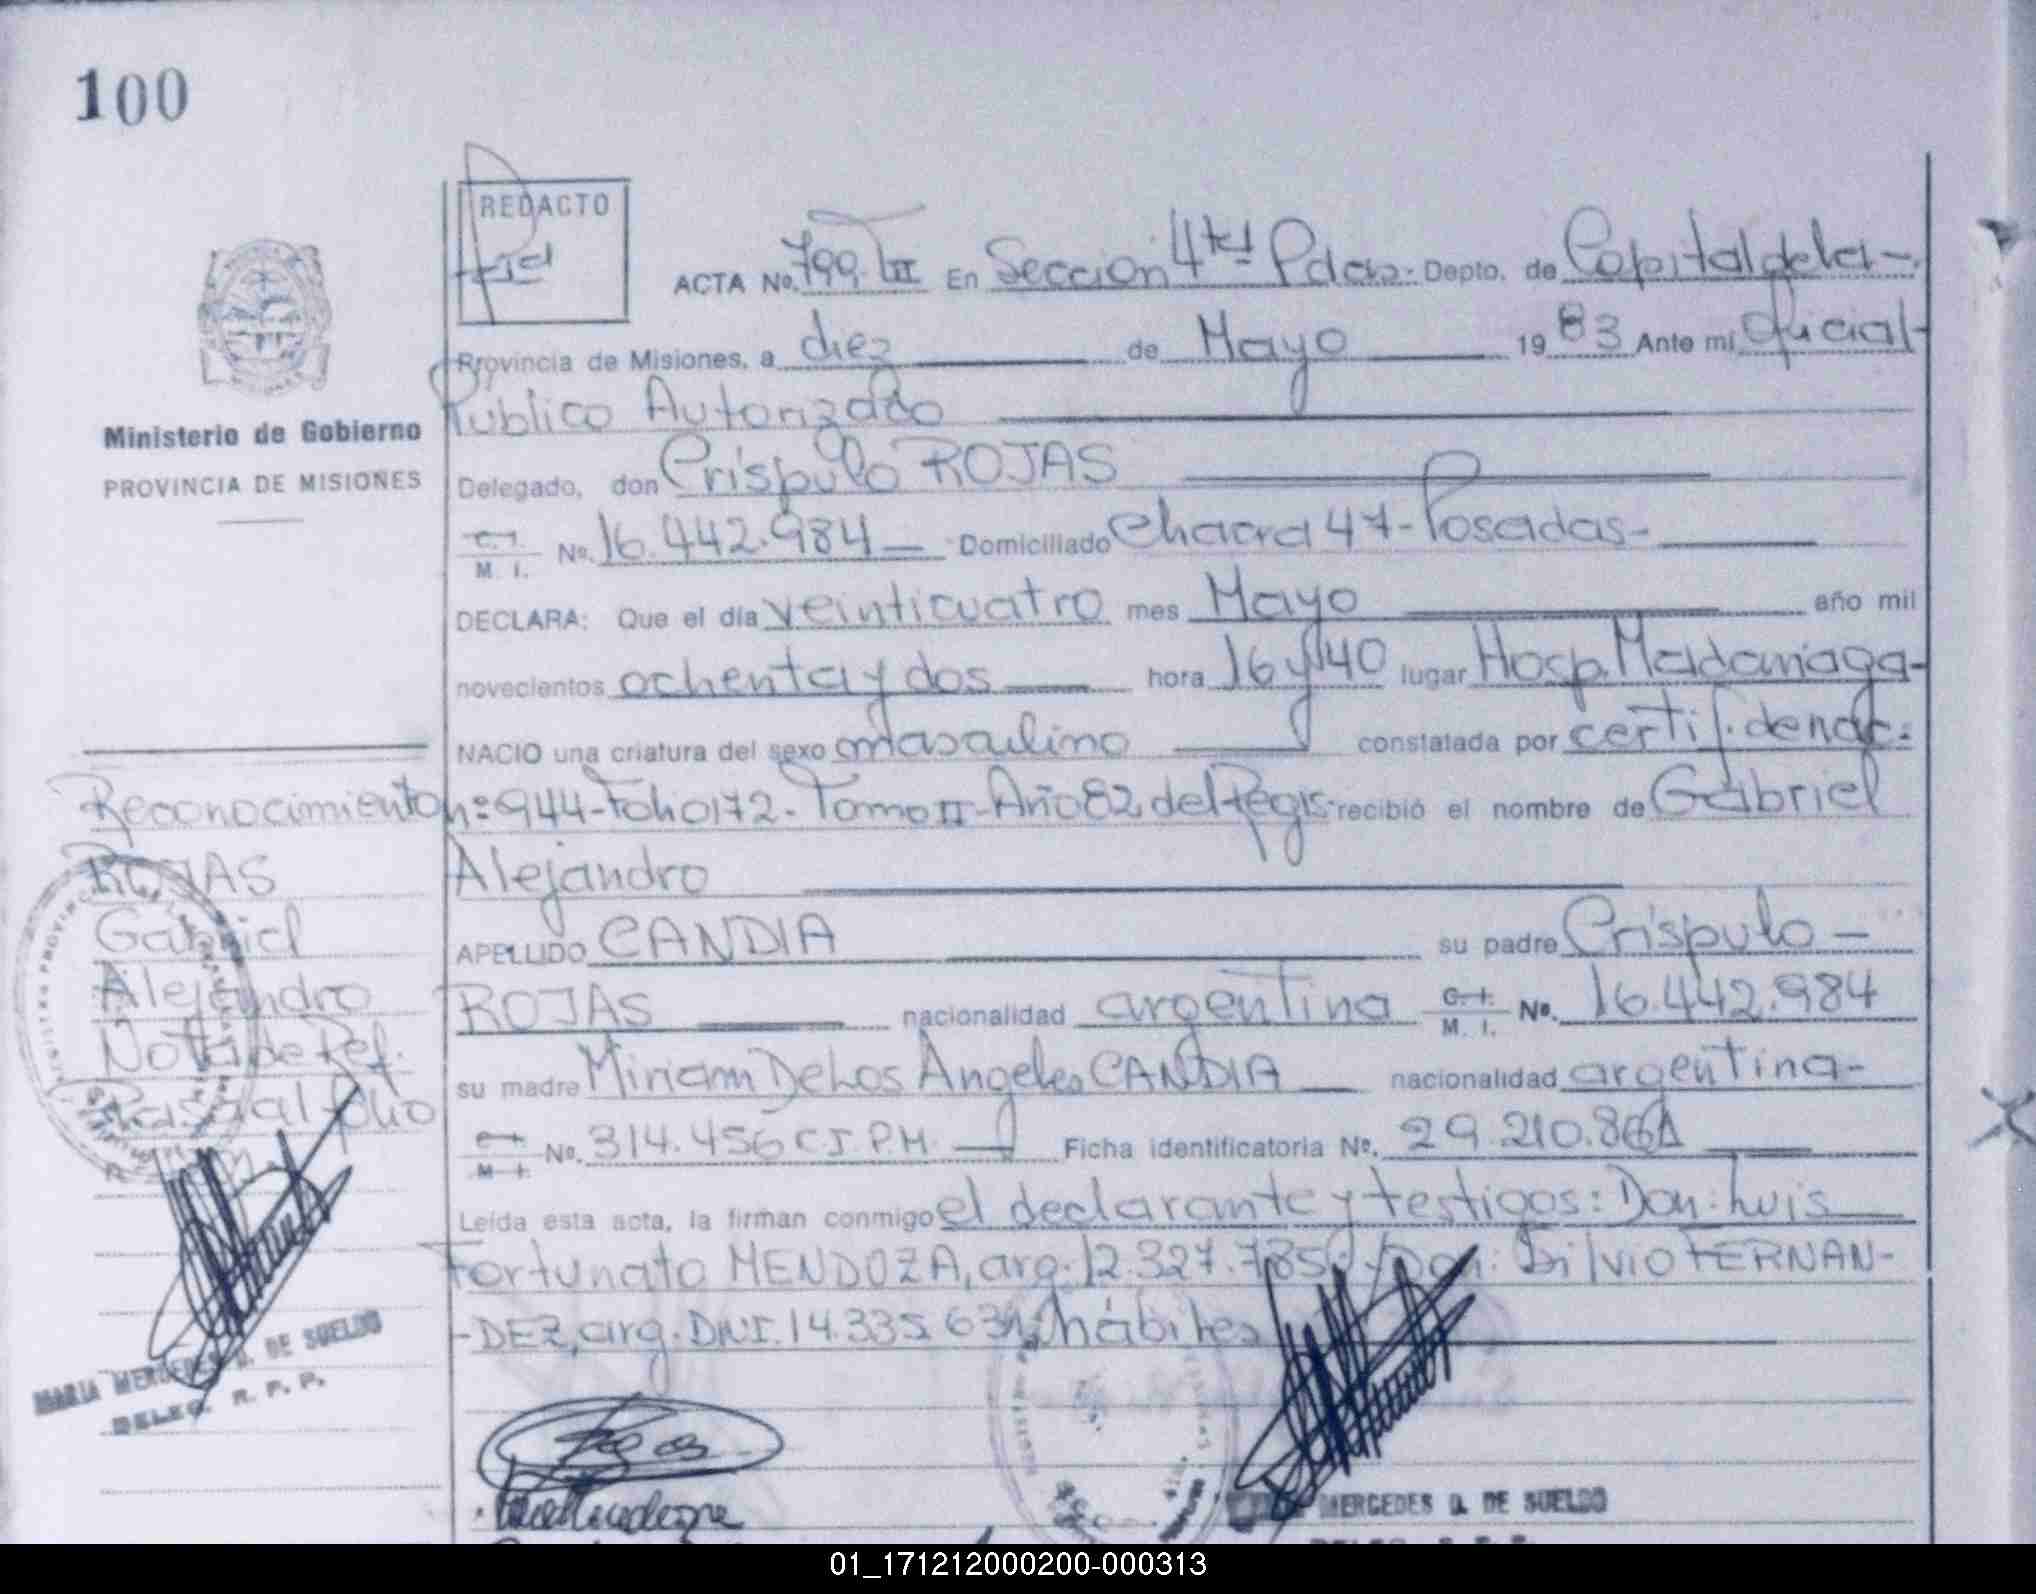 100
REDACTO
ACTA No. 799. T II En Sección 4ta Pdas. Depto. de Capital de la-.
Provincia de Misiones, a diez de Mayo 19 83 Ante mi Oficial-
Público Autorizado
Ministerio de Gobierno
PROVINCIA DE MISIONES
Delegado, don Críspulo ROJAS
C. I. M. I. No. 16.442.984 Domiciliado Chacra 47-Posadas-
DECLARA: Que el día veinticuatro mes Mayo año mil
novecientos ochenta y dos hora 16 y 40 lugar Hosp. Madariaga-
NACIO una criatura del sexo masculino constatada por certif. de nac:
n: 944-Folio 172-Tomo II-Año 82 del Regis. recibió el nombre de Gabriel
Alejandro
APELLIDO CANDIA su padre Críspulo -
ROJAS nacionalidad argentina C. I. M. I. No. 16.442.984
su madre Miriam De Los Angeles CANDIA nacionalidad argentina-
C. I. M. I. No. 314.456 C.I.P.M. Ficha identificatoria No. 29.210.861
Leída esta acta, la firman conmigo el declarante y testigos: Don: Luis
Fortunato MENDOZA, arg. 12.327.785 y Don: Silvio FERNAN-
-DEZ, arg. DNI. 14.335.631, hábiles
Reconocimiento
ROJAS
Gabriel
Alejandro
Nota de Ref.
Pasa al folio
MARIA MERCEDES D. DE SUELDO
DELEG. R. P. P.
MERCEDES D. DE SUELDO
DELEG. R. P. P.
01_171212000200-000313